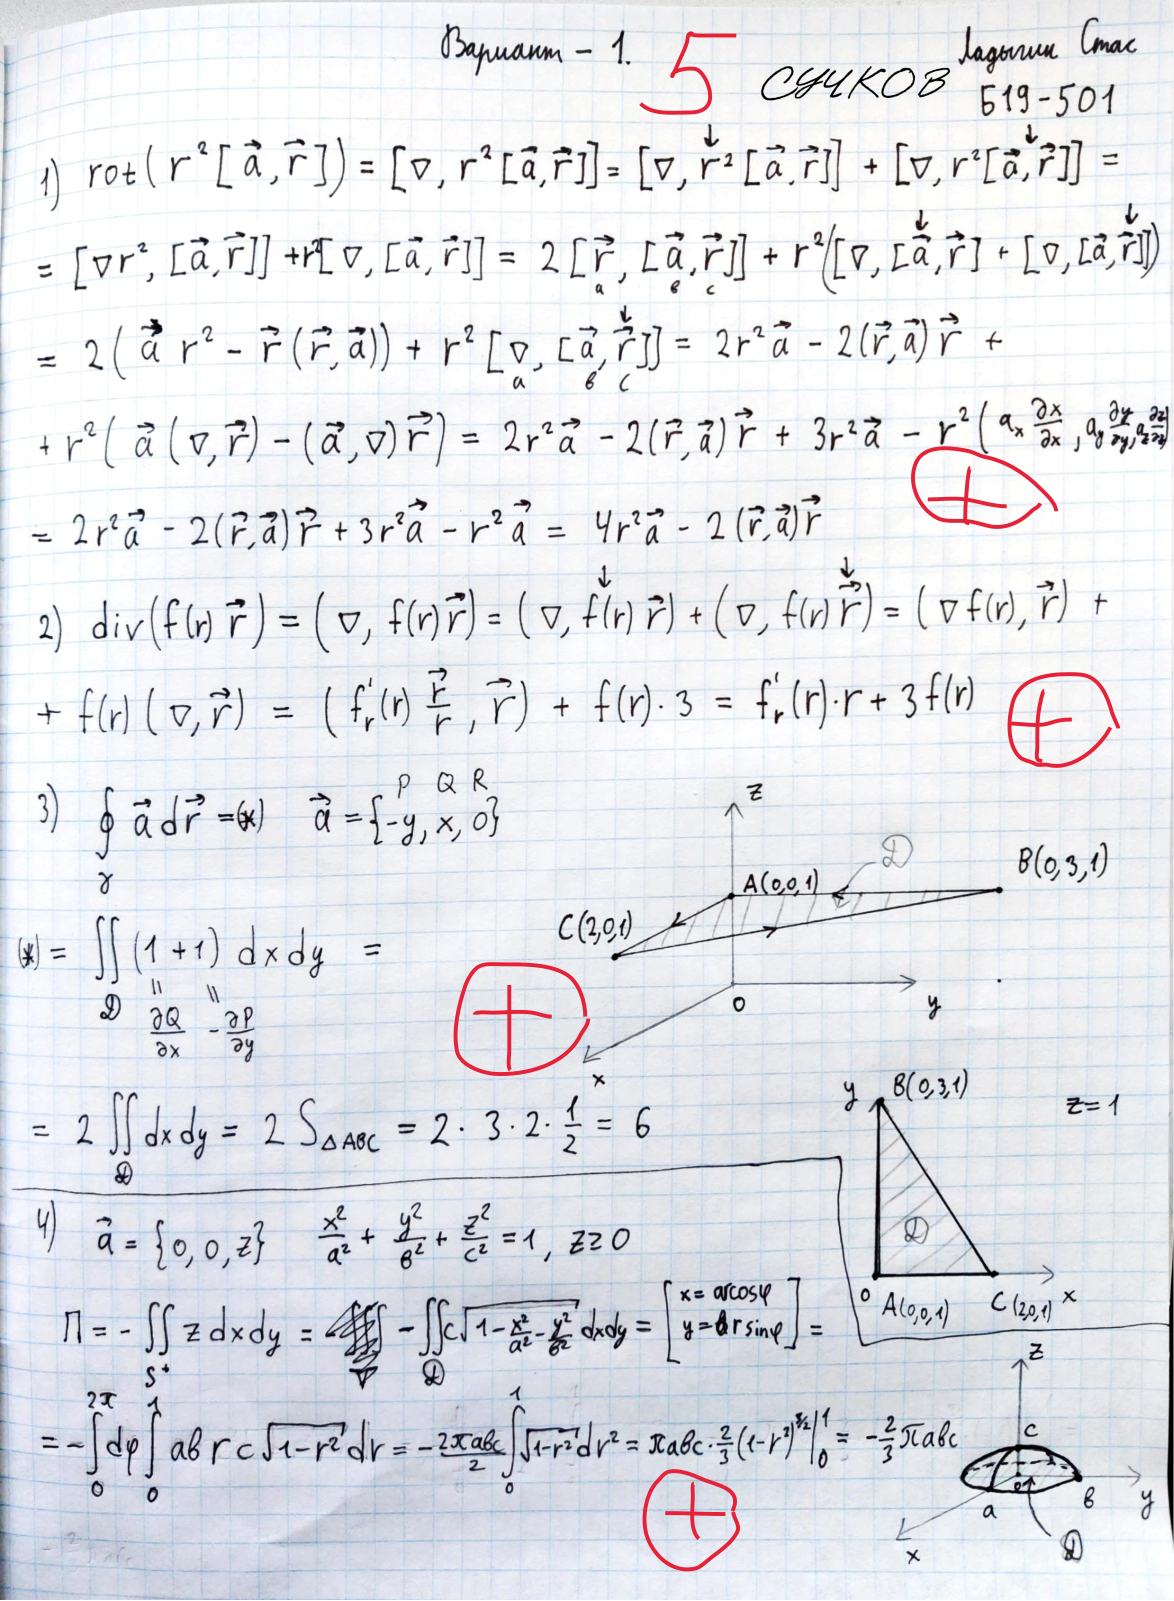 Вариант – 1. 5 сучков Ладыгин Стас
Б19-501
1) rot(r²[a⃗,r⃗]) = [∇, r²[a⃗,r⃗]] = [∇, r̗²[a⃗,r⃗]] + [∇, r²[a⃗,r⃗]] =
= [∇r², [a⃗,r⃗]] + r²[∇, [a⃗,r⃗]] = 2[r⃗, [a⃗,r⃗]] + r²([∇, [a⃗,r⃗] + [∇, [a⃗,r⃗]])
a в c
= 2(a⃗ r² – r⃗(r⃗,a⃗)) + r²[∇, [a⃗,r⃗]] = 2r²a⃗ – 2(r⃗,a⃗)r⃗ +
a в c
+ r²(a⃗(∇,r⃗) – (a⃗,∇)r⃗) = 2r²a⃗ – 2(r⃗,a⃗)r⃗ + 3r²a⃗ – r²(aₓ ∂x/∂x, a_y ∂y/∂y, a_z ∂z/∂z)
+
= 2r²a⃗ – 2(r⃗,a⃗)r⃗ + 3r²a⃗ – r²a⃗ = 4r²a⃗ – 2(r⃗,a⃗)r⃗
2) div(f(r)r⃗) = (∇, f(r)r⃗) = (∇, f(r)r⃗) + (∇, f(r)r⃗) = (∇f(r), r⃗) +
+ f(r)(∇,r⃗) = (f'ᵣ(r) r⃗/r, r⃗) + f(r)·3 = f'ᵣ(r)·r + 3f(r)
+
P Q R
3) ∮_γ a⃗dr⃗ = (*) a⃗ = {-y, x, 0}
z
A(0,0,1)
D
B(0,3,1)
C(2,0,1)
0
y
x
(*) = ∬_D (1 + 1) dxdy =
∂Q/∂x -∂P/∂y
+
= 2∬_D dxdy = 2 S_ΔABC = 2·3·2·1/2 = 6
y B(0,3,1)
z=1
D
0 A(0,0,1) C(2,0,1) x
4) a⃗ = {0, 0, z} x²/a² + y²/в² + z²/c² = 1, z≥0
П = -∬_S⁺ z dxdy = -∬_D c√(1-x²/a²-y²/в²) dxdy = [x=arcosφ y=вrsinφ] =
= -∫₀^2π dφ ∫₀¹ aв r c √(1-r²) dr = -2πaвc/2 ∫₀¹ √(1-r²) dr² = πaвc·2/3(1-r²)^3/2|₀¹ = -2/3 πaвc
+
z
c
0
a
в
y
x
D